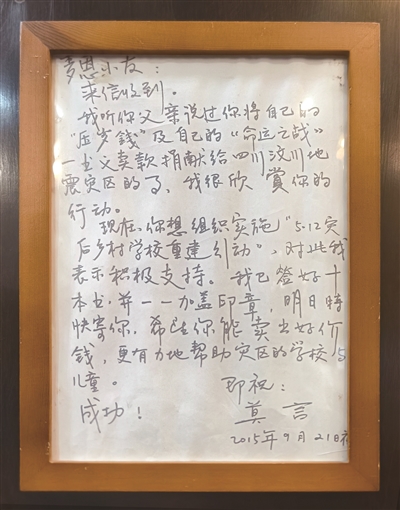 梦恩小友：
来信收到。
我听你父亲说过你将自己的
“压岁錢”及自己的“命运之战”
一书义卖款捐献给四川汶川地
震灾区的了，我很欣赏你的
行动。
现在，你想组织实施“5·12灾
后乡村学校重建行动”，对此我
表示积极支持。我已签好十
本书，并一一加盖印章，明日特
快寄你，希望你能卖出好价
錢，更有力地帮助灾区的学校与
儿童。
即祝：
成功！
莫言
2015年9月21日